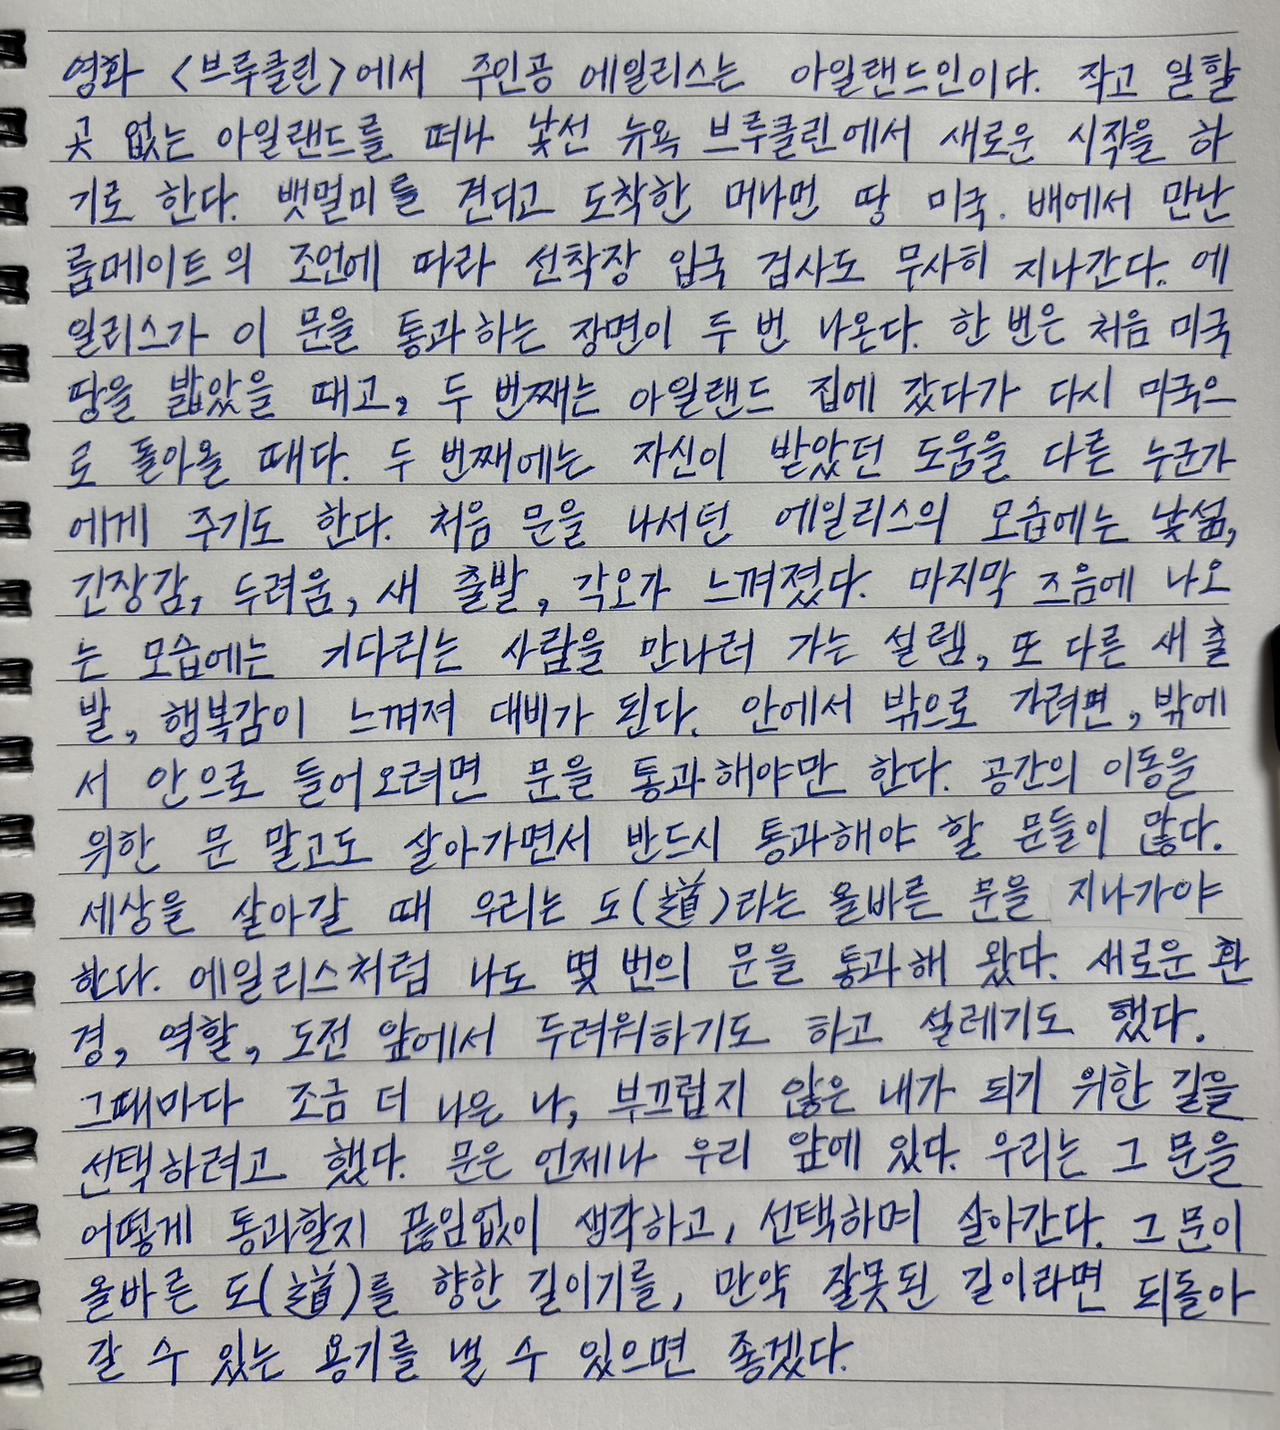 영화 <브루클린>에서 주인공 에일리스는 아일랜드인이다. 작고 일할
곳 없는 아일랜드를 떠나 낯선 뉴욕 브루클린에서 새로운 시작을 하
기로 한다. 뱃멀미를 견디고 도착한 머나먼 땅 미국. 배에서 만난
룸메이트의 조언에 따라 선착장 입국 검사도 무사히 지나간다. 에
일리스가 이 문을 통과하는 장면이 두 번 나온다. 한 번은 처음 미국
땅을 밟았을 때고, 두 번째는 아일랜드 집에 갔다가 다시 미국으
로 돌아올 때다. 두 번째에는 자신이 받았던 도움을 다른 누군가
에게 주기도 한다. 처음 문을 나서던 에일리스의 모습에는 낯섦,
긴장감, 두려움, 새 출발, 각오가 느껴졌다. 마지막 즈음에 나오
는 모습에는 기다리는 사람을 만나러 가는 설렘, 또 다른 새 출
발, 행복감이 느껴져 대비가 된다. 안에서 밖으로 가려면, 밖에
서 안으로 들어오려면 문을 통과해야만 한다. 공간의 이동을
위한 문 말고도 살아가면서 반드시 통과해야 할 문들이 많다.
세상을 살아갈 때 우리는 도(道)라는 올바른 문을 지나가야
한다. 에일리스처럼 나도 몇 번의 문을 통과해 왔다. 새로운 환
경, 역할, 도전 앞에서 두려워하기도 하고 설레기도 했다.
그때마다 조금 더 나은 나, 부끄럽지 않은 내가 되기 위한 길을
선택하려고 했다. 문은 언제나 우리 앞에 있다. 우리는 그 문을
어떻게 통과할지 끊임없이 생각하고, 선택하며 살아간다. 그 문이
올바른 도(道)를 향한 길이기를, 만약 잘못된 길이라면 되돌아
갈 수 있는 용기를 낼 수 있으면 좋겠다.